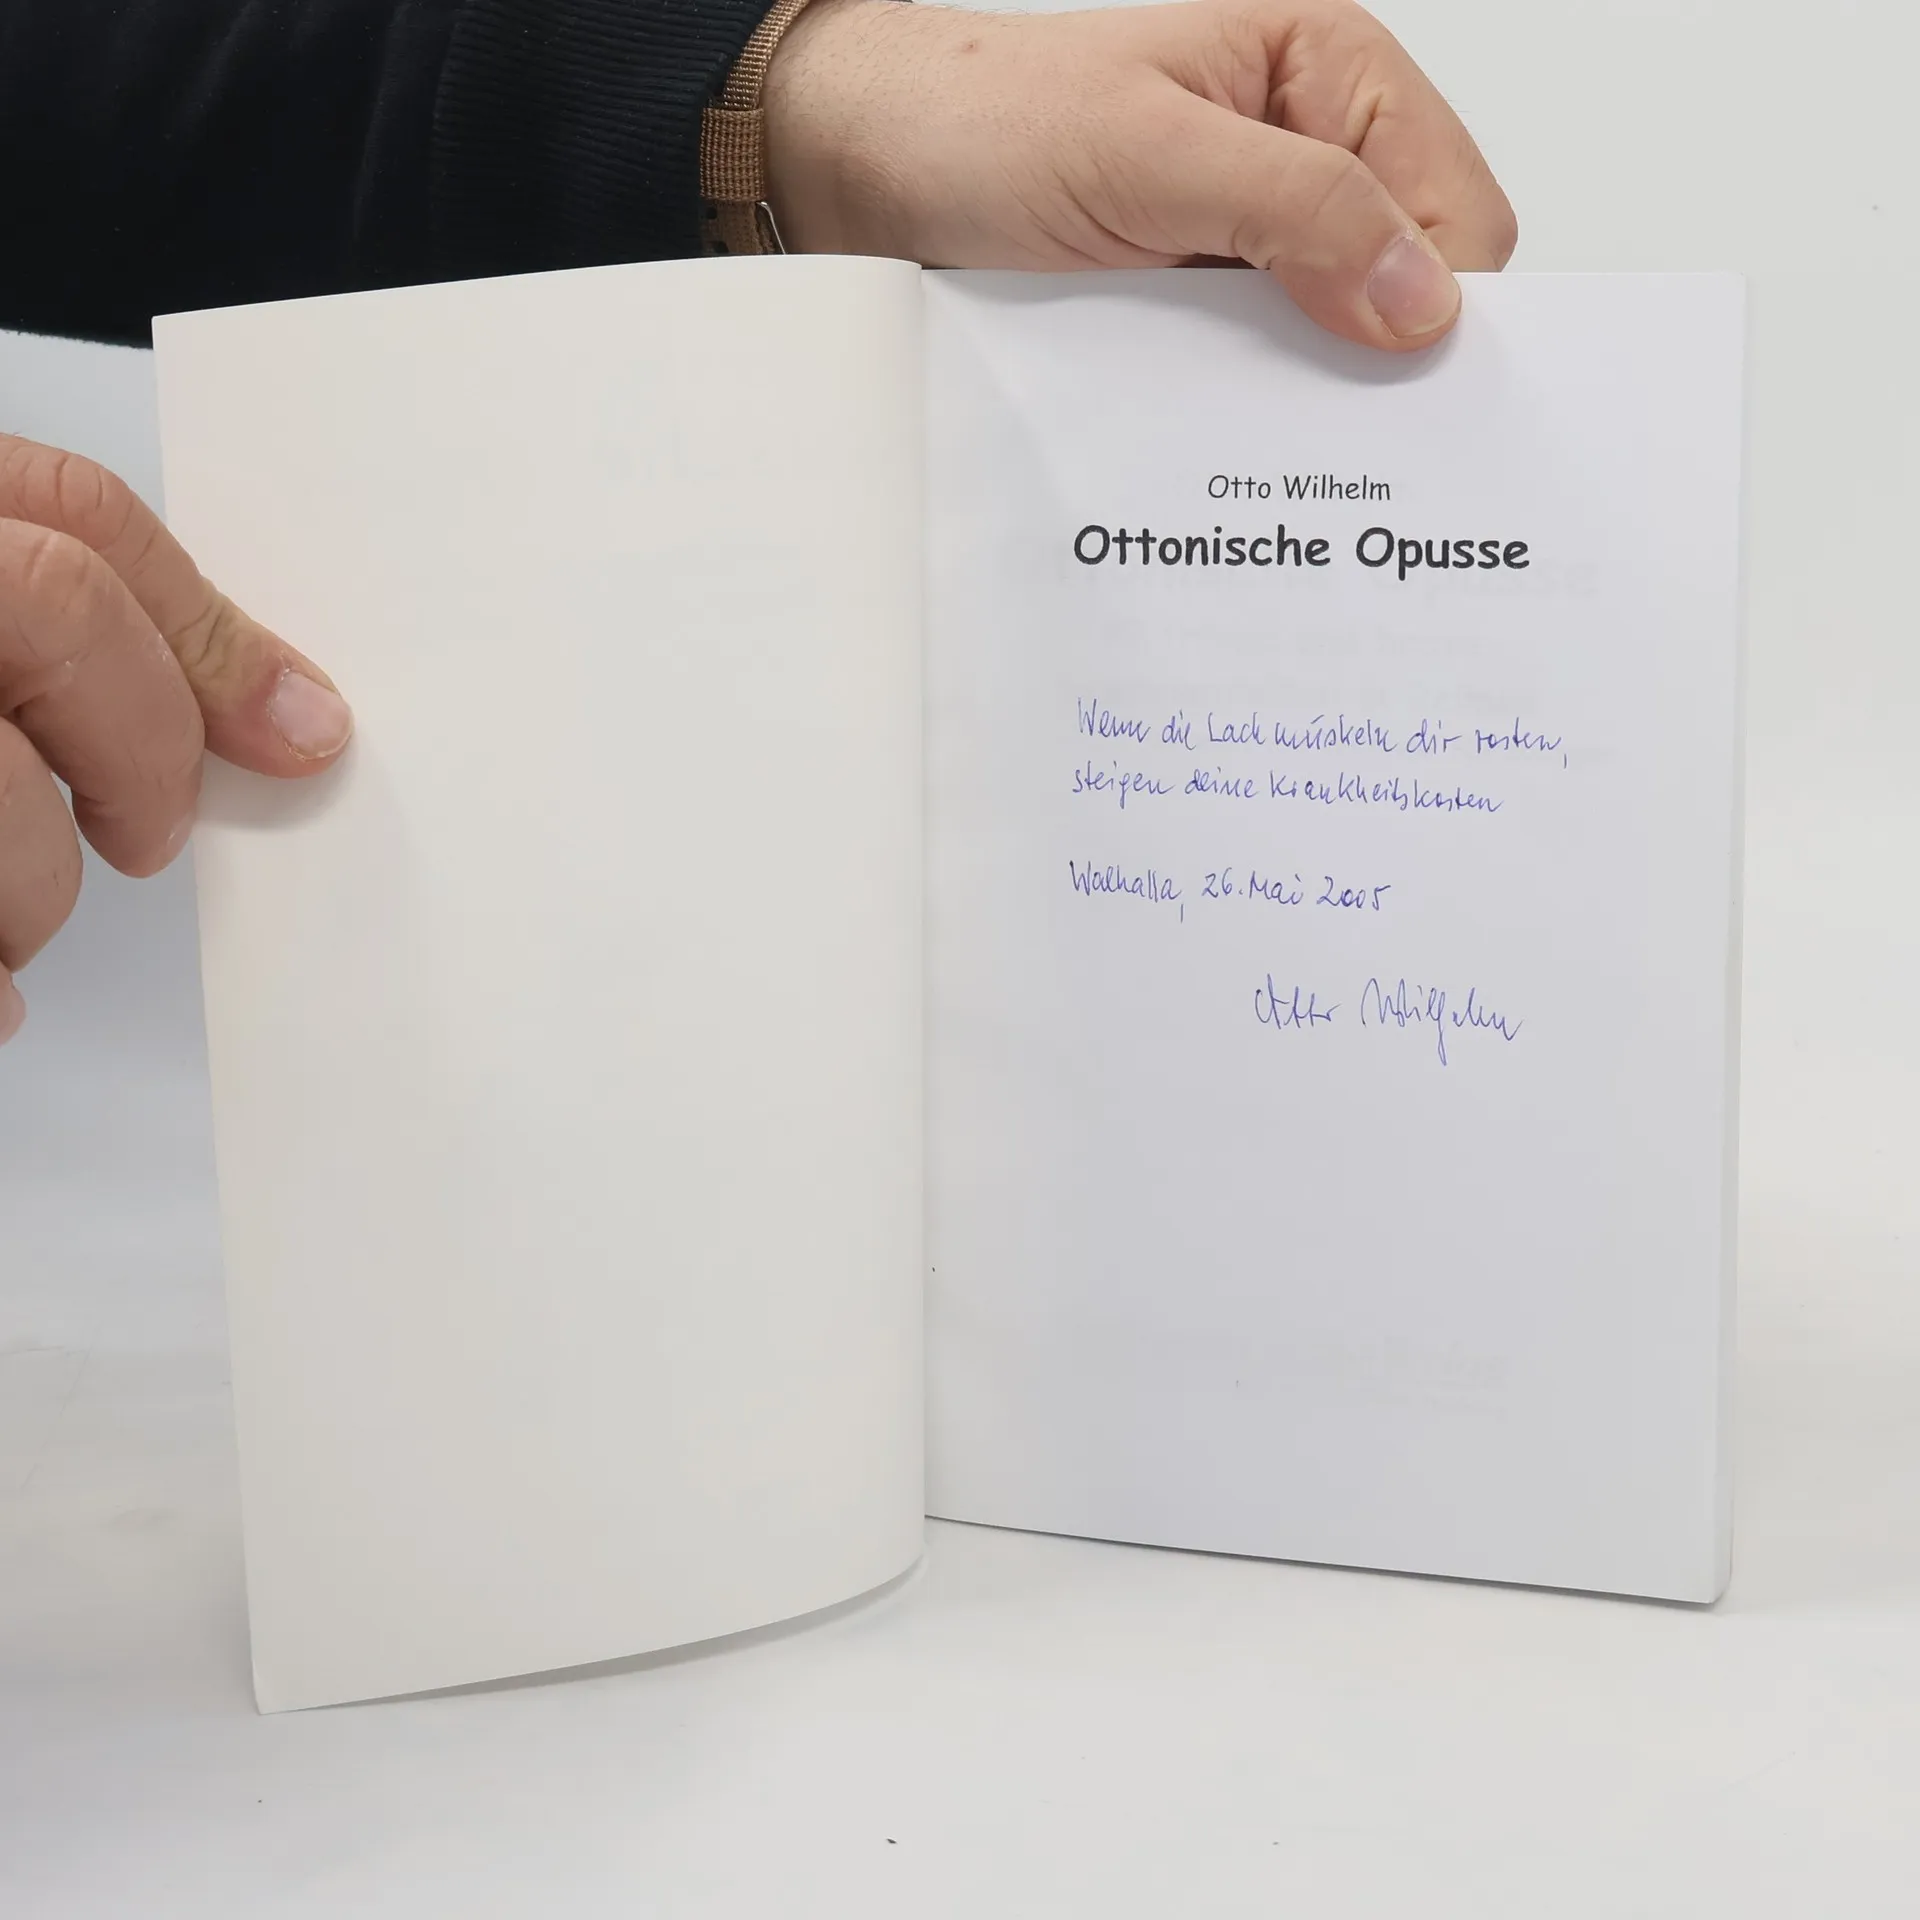 Otto Wilhelm
Ottonische Opusse
Wenn die Lachmuskeln dir rosten,
steigen deine Krankheitskosten
Walhalla, 26. Mai 2005
Otto Wilhelm